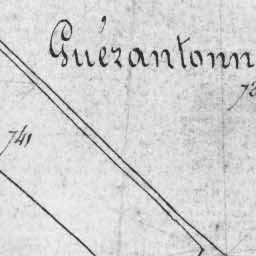 Guérantonn
741